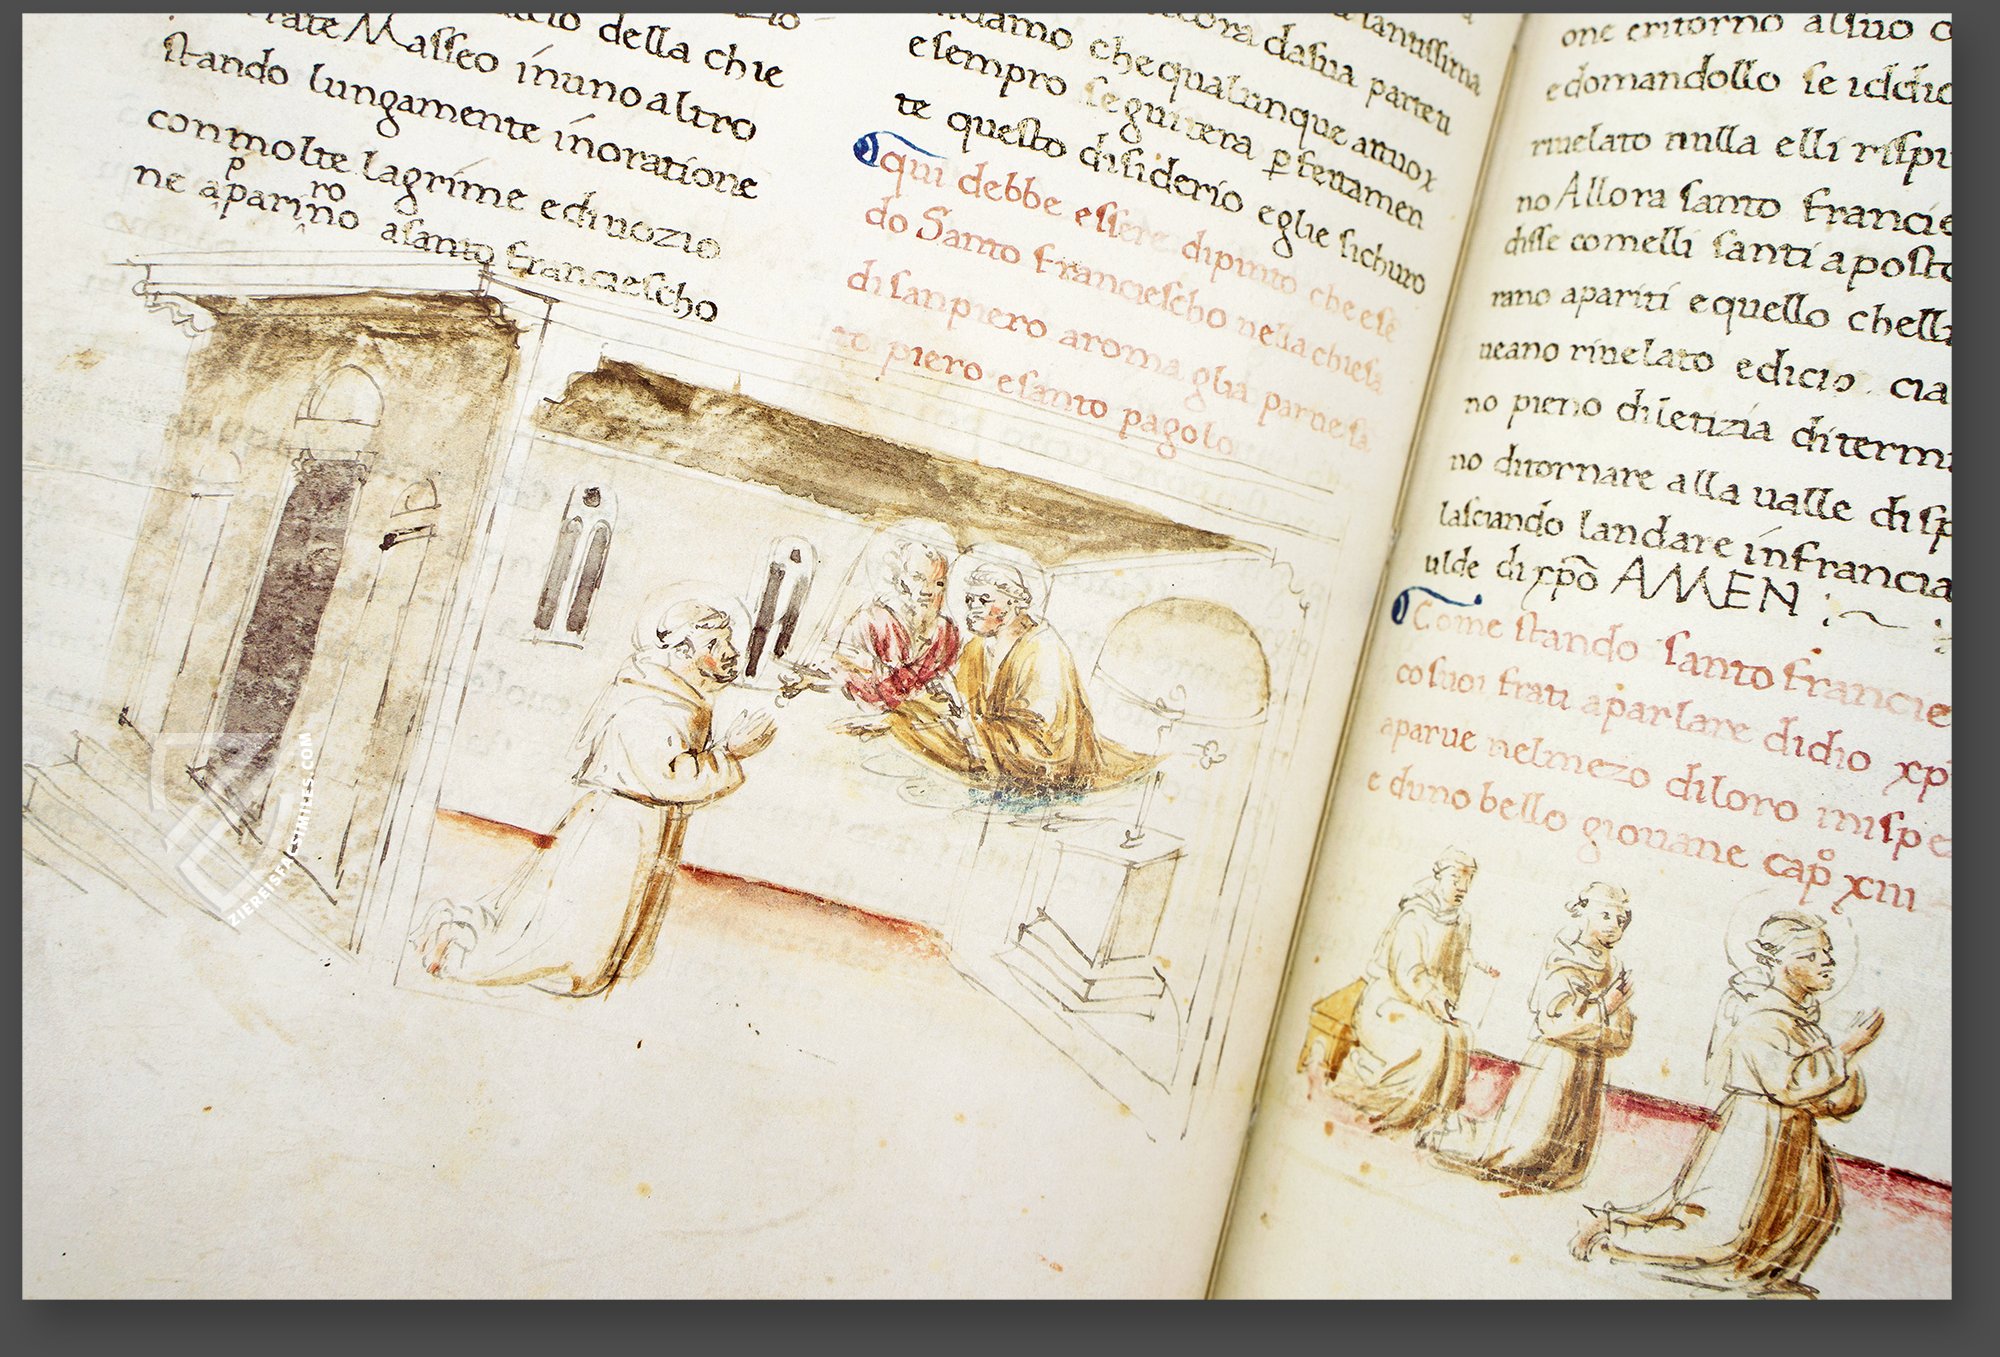 della chie
rate Masseo inuno altro
stando lungamente inoratione
conmolte lagrime ediuozio
p ro
ne aparino asanto franciescho
dasua parten
diamo chequalunque attuox
esempro seguitera ꝑfettamen
te questo disiderio eglie sichuro
qui debbe essere dipinto che ese
do Santo franciescho nella chiesa
disanpiero aroma glia parue sa
to piero esanto pagolo
one eritorno alsuo
edomandollo se iddio
riuelato nulla elli rispu
no Allora santo francie
disse comelli santi aposto
rano apariti equello chelli
ueano riuelato edicio cia
no pieno diletizia diterm
no ditornare alla ualle disp
lasciando landare infrancia
ulde di xp̄o AMEN
Come stando santo francie
cosuoi frati aparlare didio xp
aparue nelmezo diloro inispe
e duno bello giouane cap̊ xiii
ZIEREISFACSIMILES.COM